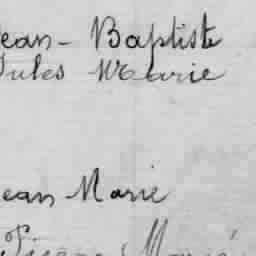 Jean - Baptiste
Jules Marie
Jean Marie
Pierre Marie